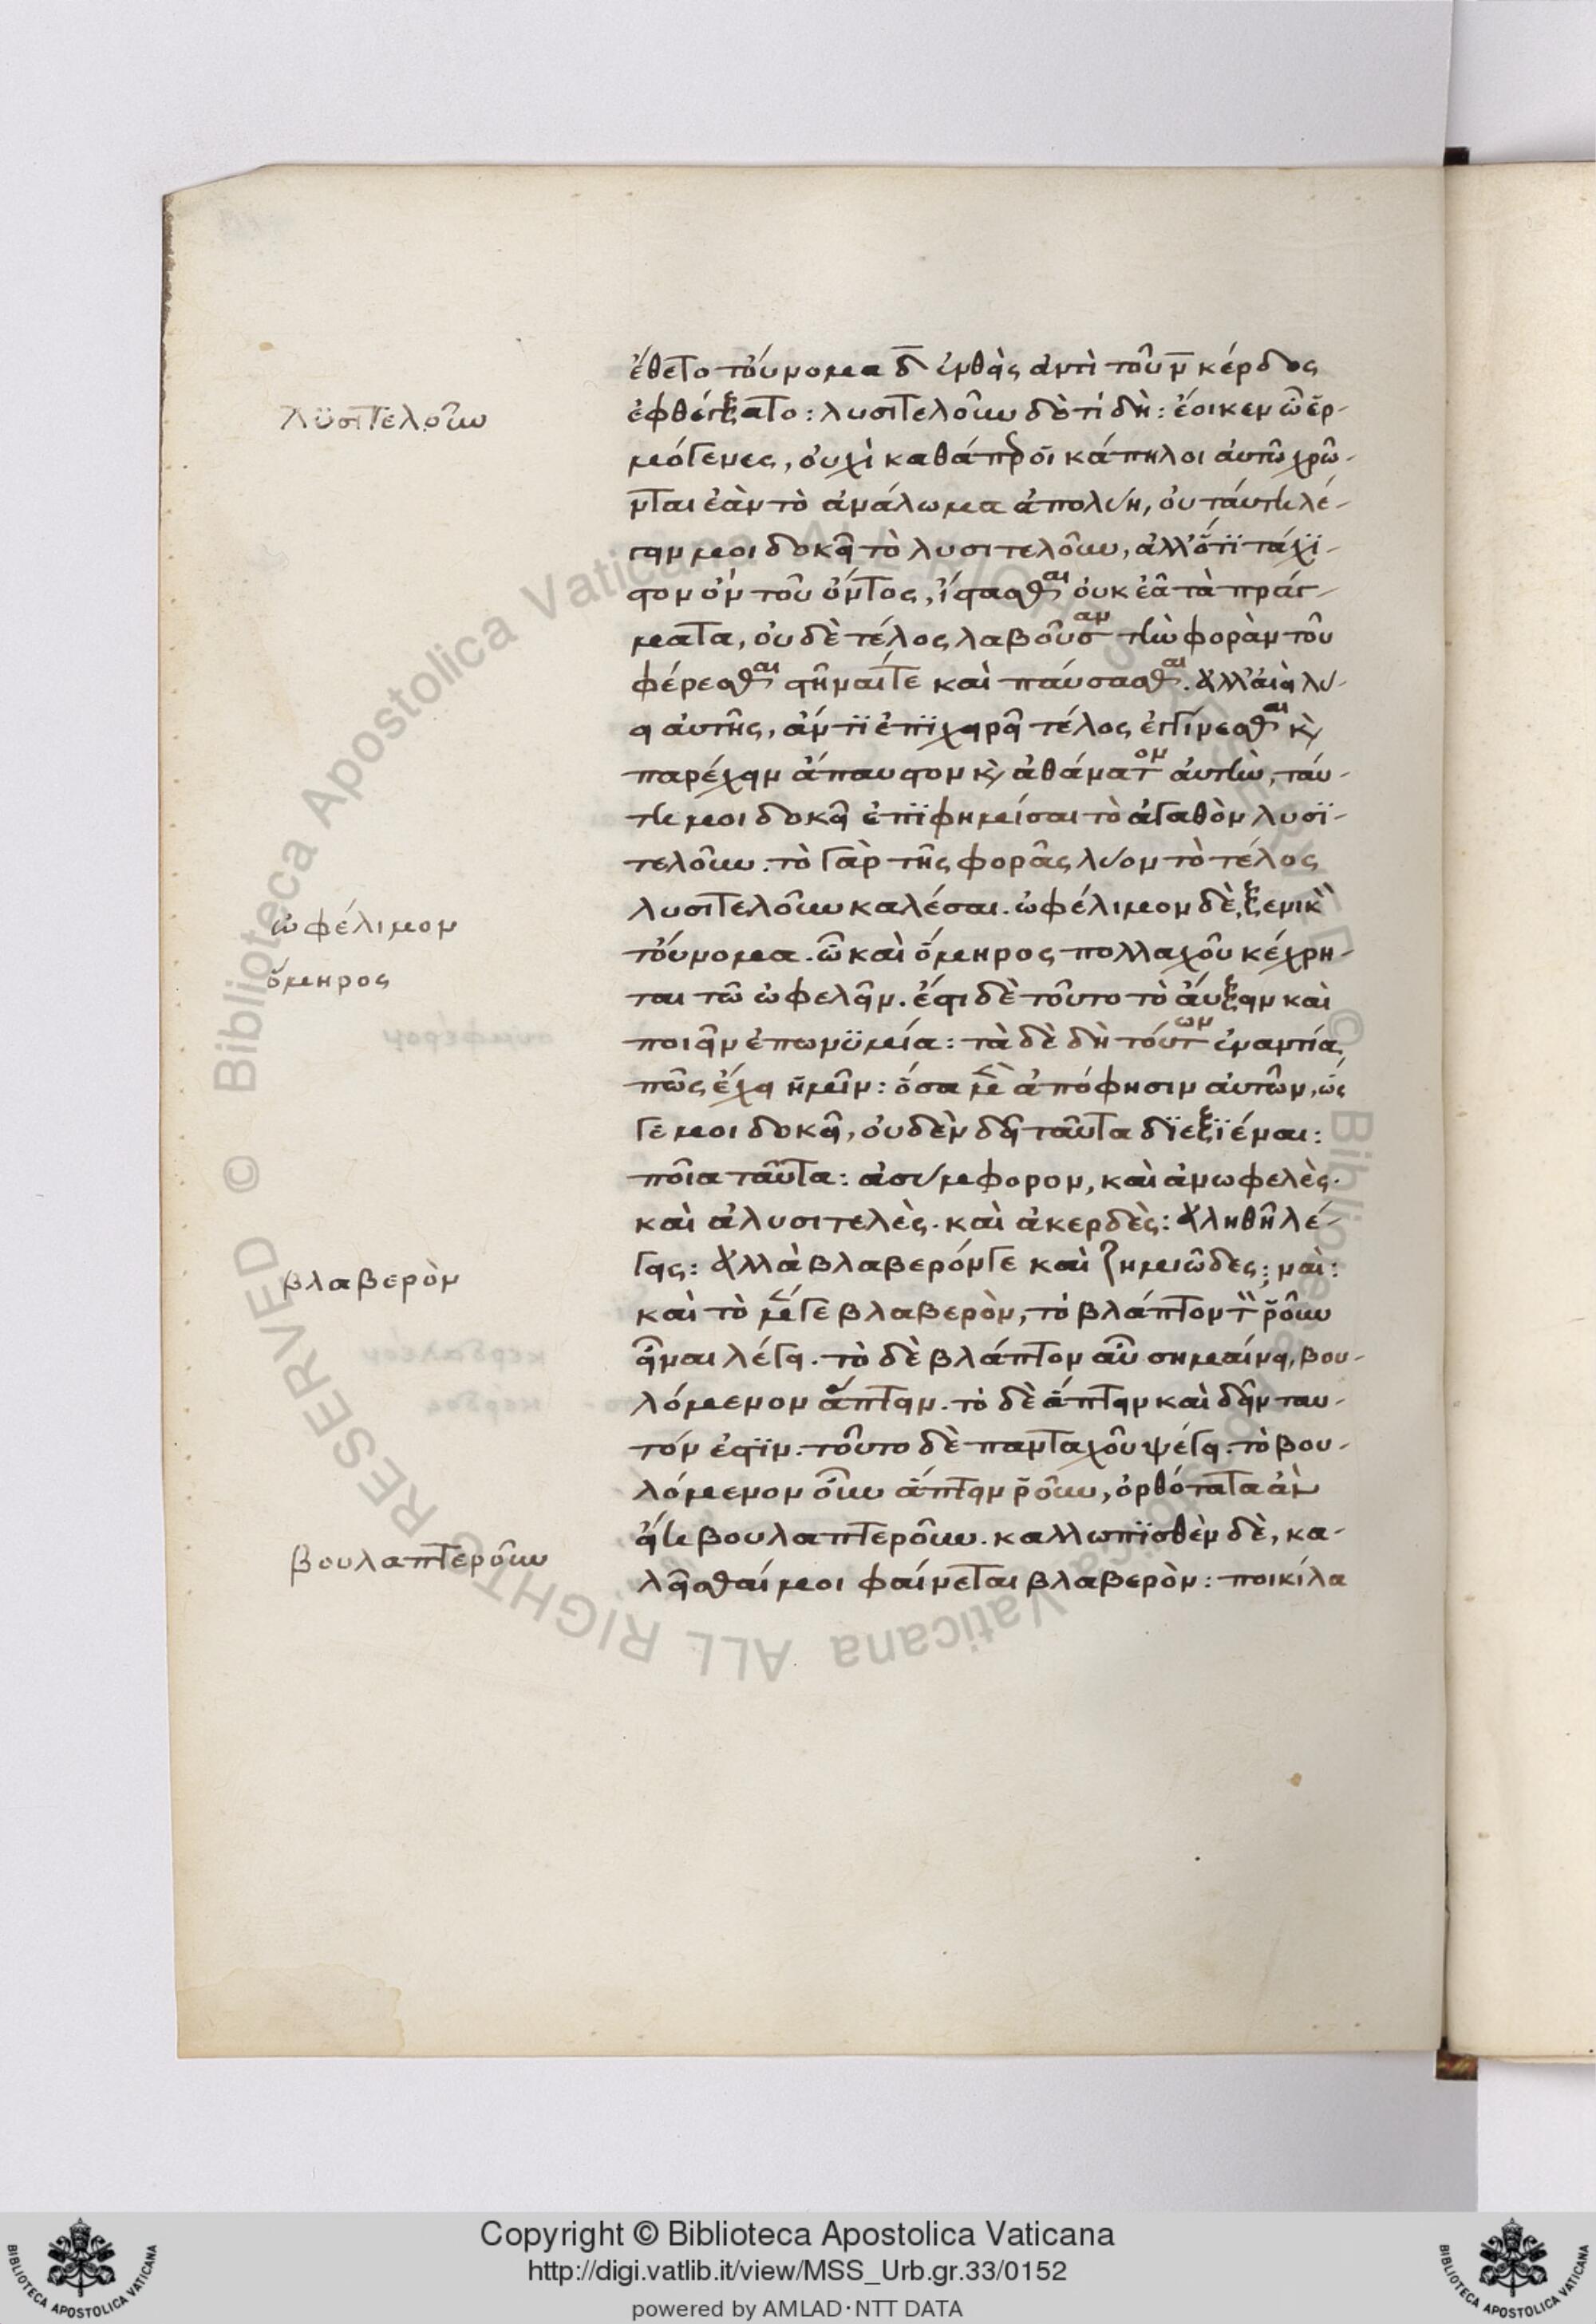 ἔθετο τοὔνομα δ̅ ἐνθεὶς ἀντὶ τοῦ ν̅ κέρδος
ἐφθέγξατο: λυσιτελοῦν δὲ τί δὴ: ἔοικεν ὦ ἑρ-
μόγενες, οὐχὶ καθάπερ οἱ κάπηλοι αὐτῶ χρῶ-
νται ἐὰν τὸ ἀνάλωμα ἀπολύη, οὐ ταύτη λέ-
γειν μοι δοκεῖ τὸ λυσιτελοῦν, ἀλλ' ὅτι τάχι-
στον ὂν τοῦ ὄντος, ἵστασθαι οὐκ ἐᾶ τὰ πράγ-
ματα, οὐδὲ τέλος λαβοῦσαν τὴν φορὰν τοῦ
φέρεσθαι στῆναί τε καὶ παύσασθαι. ἀλλ' ἀεὶ λύ-
ει αὐτῆς, ἄν τι ἐπιχειρεῖ τέλος ἐγγίνεσθαι κ̀
παρέχειν ἄπαυστον κ̀ ἀθάνατον αὐτὴν, ταύ-
τη μοι δοκεῖ ἐπιφημίσαι τὸ ἀγαθὸν λυσι-
τελοῦν. τὸ γὰρ τῆς φορᾶς λύον τὸ τέλος
λυσιτελοῦν καλέσαι. ὠφέλιμον δὲ, ξενικὸν
τοὔνομα. ὧ καὶ ὅμηρος πολλαχοῦ κέχρη-
ται τῶ ὠφελεῖν. ἔστι δὲ τοῦτο τὸ αὔξειν καὶ
ποιεῖν ἐπωνυμία: τὰ δὲ δὴ τούτων ἐναντία
πῶς ἔχει ἡμῖν: ὅσα μὲν ἀπόφησιν αὐτῶν, ὥς
γε μοι δοκεῖ, οὐδὲν δεῖ ταῦτα διεξιέναι:
ποῖα ταῦτα: ἀσύμφορον, καὶ ἀνωφελὲς.
καὶ ἀλυσιτελὲς. καὶ ἀκερδὲς: ἀληθῆ λέ-
γεις: ἀλλὰ βλαβερόν γε καὶ ζημιῶδες; ναὶ:
καὶ τὸ μέν γε βλαβερὸν, τὸ βλάπτον τὸν ῥοῦν
εἶναι λέγει. τὸ δὲ βλάπτον αὖ σημαίνει, βου-
λόμενον ἅπτειν. τὸ δὲ ἅπτειν καὶ δεῖν ταυ-
τόν ἐστιν. τοῦτο δὲ πανταχοῦ ψέγει. τὸ βου-
λόμενον οὖν ἅπτειν ῥοῦν, ὀρθότατα ἂν
εἴη βουλαπτεροῦν. καλλωπισθὲν δὲ, κα-
λεῖσθαί μοι φαίνεται βλαβερὸν: ποικίλα
λϋσιτελοῦν
ὠφέλιμον
ὅμηρος
βλαβερὸν
βουλαπτεροῦν
© Biblioteca Apostolica Vaticana ALL RIGHTS RESERVED
© Biblioteca Apostolica Vaticana ALL RIGHTS RESERVED
Copyright © Biblioteca Apostolica Vaticana
http://digi.vatlib.it/view/MSS_Urb.gr.33/0152
powered by AMLAD·NTT DATA
BIBLIOTECA APOSTOLICA VATICANA
BIBLIOTECA APOSTOLICA VATICANA